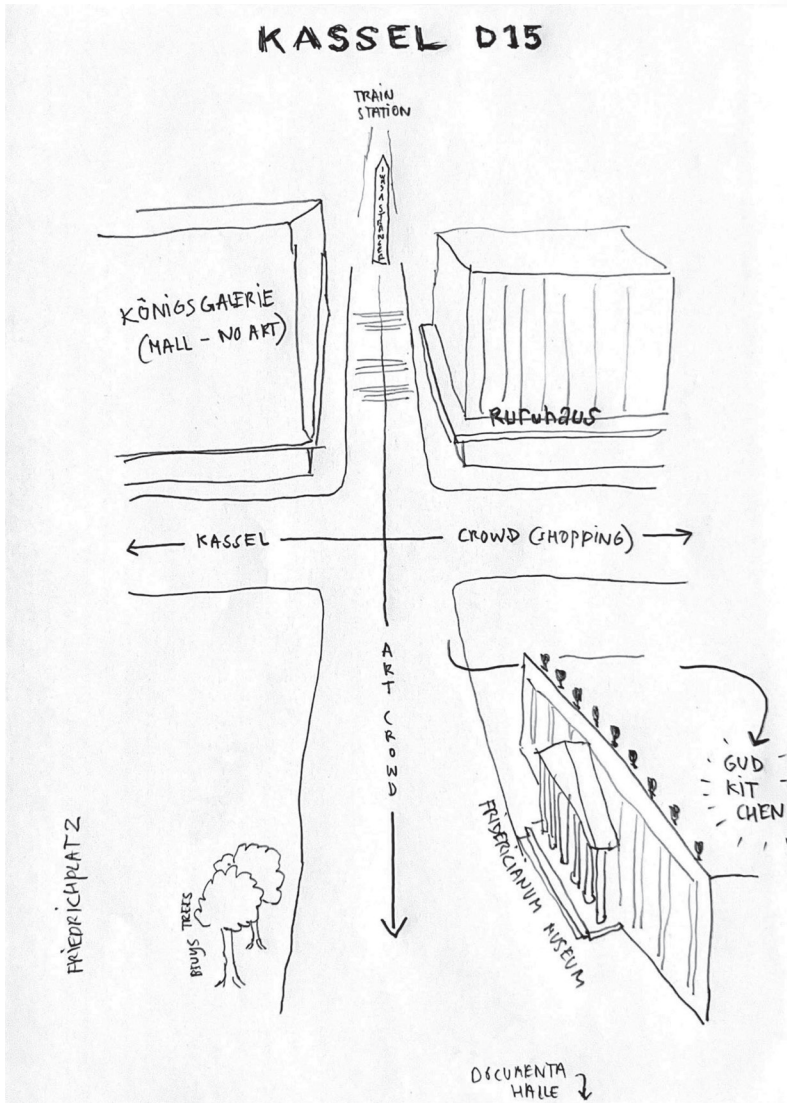 KASSEL D15
TRAIN
STATION
I WAS A STRANGER
KÖNIGSGALERIE
(MALL - NO ART)
RURUHAUS
KASSEL
CROWD (SHOPPING)
ART CROWD
GUD
KIT
CHEN
FRIDERICIANUM MUSEUM
FRIEDRICHPLATZ
BEUYS TREES
DOCUMENTA
HALLE